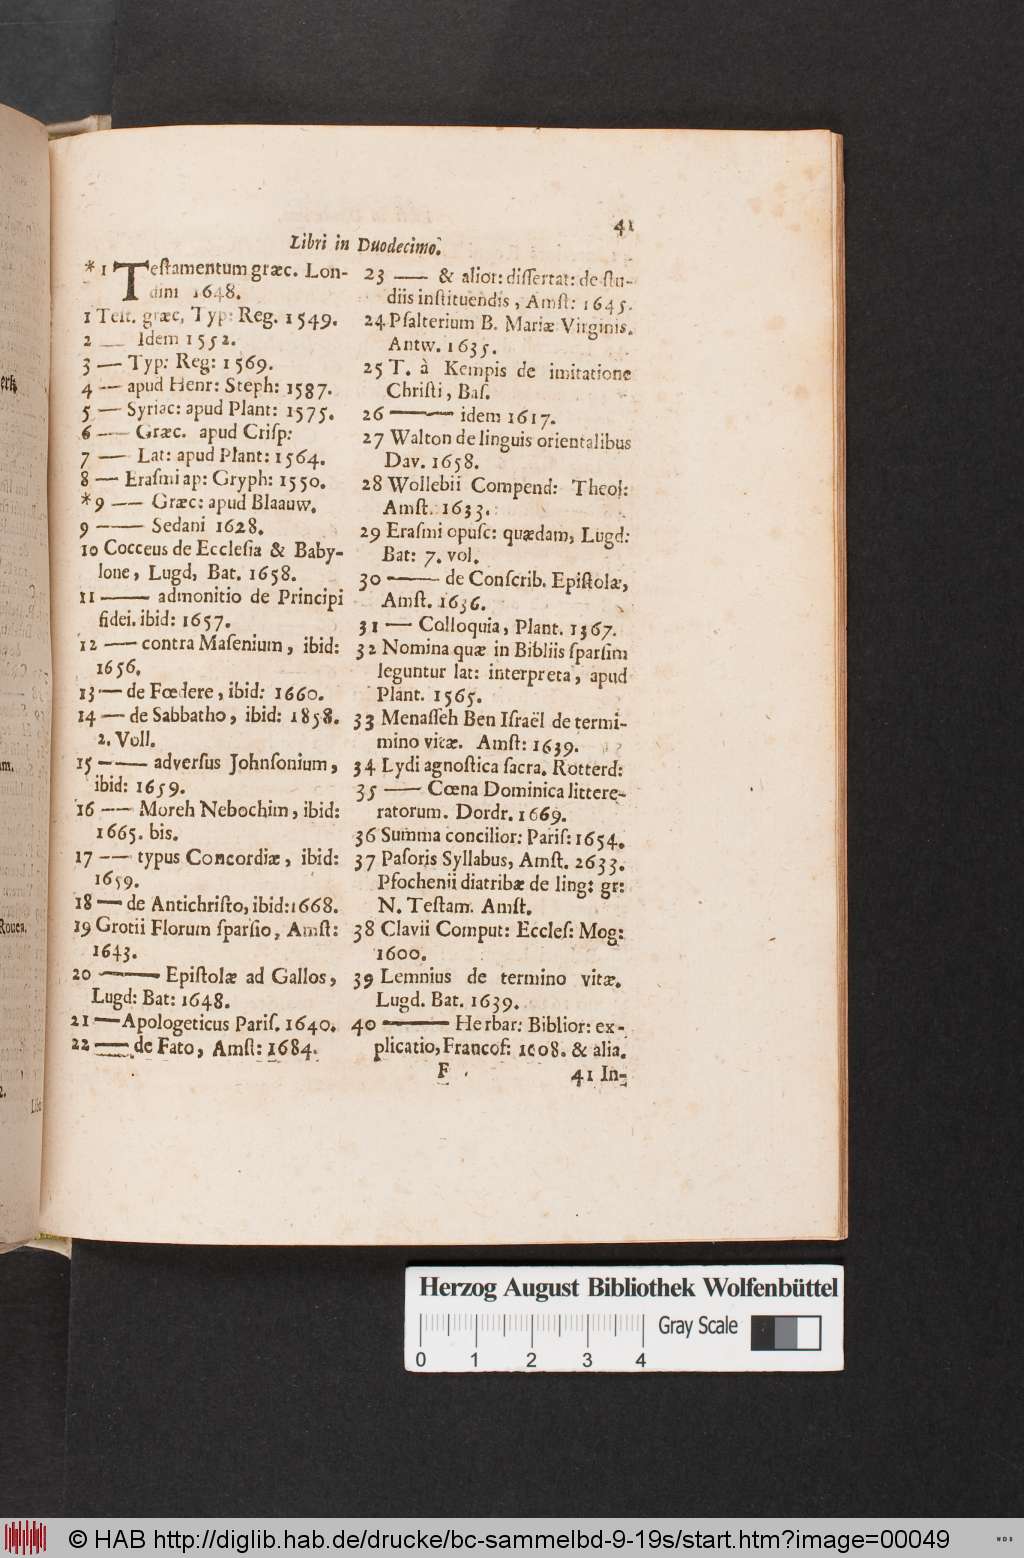 41
Libri in Duodecimo.
*1 Testamentum græc. Lon-
dini 1648.
1 Test. græc, Typ: Reg. 1549.
2 — Idem 1552.
3 — Typ: Reg: 1569.
4 — apud Henr: Steph: 1587.
5 — Syriac: apud Plant: 1575.
6 — Græc. apud Crisp:
7 — Lat: apud Plant: 1564.
8 — Erasmi ap: Gryph: 1550.
*9 — Græc: apud Blaauw.
9 — Sedani 1628.
10 Cocceus de Ecclesia & Baby-
lone, Lugd, Bat. 1658.
11 — admonitio de Principi
fidei. ibid: 1657.
12 — contra Masenium, ibid:
1656.
13 — de Fœdere, ibid: 1660.
14 — de Sabbatho, ibid: 1858.
2. Voll.
15 — adversus Johnsonium,
ibid: 1659.
16 — Moreh Nebochim, ibid:
1665. bis.
17 — typus Concordiæ, ibid:
1659.
18 — de Antichristo, ibid: 1668.
19 Grotii Florum sparsio, Amst:
1643.
20 — Epistolæ ad Gallos,
Lugd: Bat: 1648.
21 — Apologeticus Paris. 1640.
22 — de Fato, Amst: 1684.
23 — & alior: dissertat: de stu-
diis instituendis, Amst: 1645.
24 Psalterium B. Mariæ Virginis.
Antw. 1635.
25 T. à Kempis de imitatione
Christi, Bas.
26 — idem 1617.
27 Walton de linguis orientalibus
Dav. 1658.
28 Wollebii Compend: Theol:
Amst. 1633.
29 Erasmi opusc: quædam, Lugd:
Bat: 7. vol.
30 — de Conscrib. Epistolæ,
Amst. 1636.
31 — Colloquia, Plant. 1367.
32 Nomina quæ in Bibliis sparsim
leguntur lat: interpreta, apud
Plant. 1565.
33 Menasseh Ben Israël de termi-
mino vitæ. Amst: 1639.
34 Lydi agnostica sacra. Rotterd:
35 — Cœna Dominica littere-
ratorum. Dordr. 1669.
36 Summa concilior: Paris: 1654.
37 Pasoris Syllabus, Amst. 2633.
Pfochenii diatribæ de ling: gr:
N. Testam. Amst.
38 Clavii Comput: Eccles: Mog:
1600.
39 Lemnius de termino vitæ.
Lugd. Bat. 1639.
40 — Herbar: Biblior: ex-
plicatio, Francof: 1608. & alia.
F
41 In-
Herzog August Bibliothek Wolfenbüttel
Gray Scale
0 1 2 3 4
© HAB http://diglib.hab.de/drucke/bc-sammelbd-9-19s/start.htm?image=00049